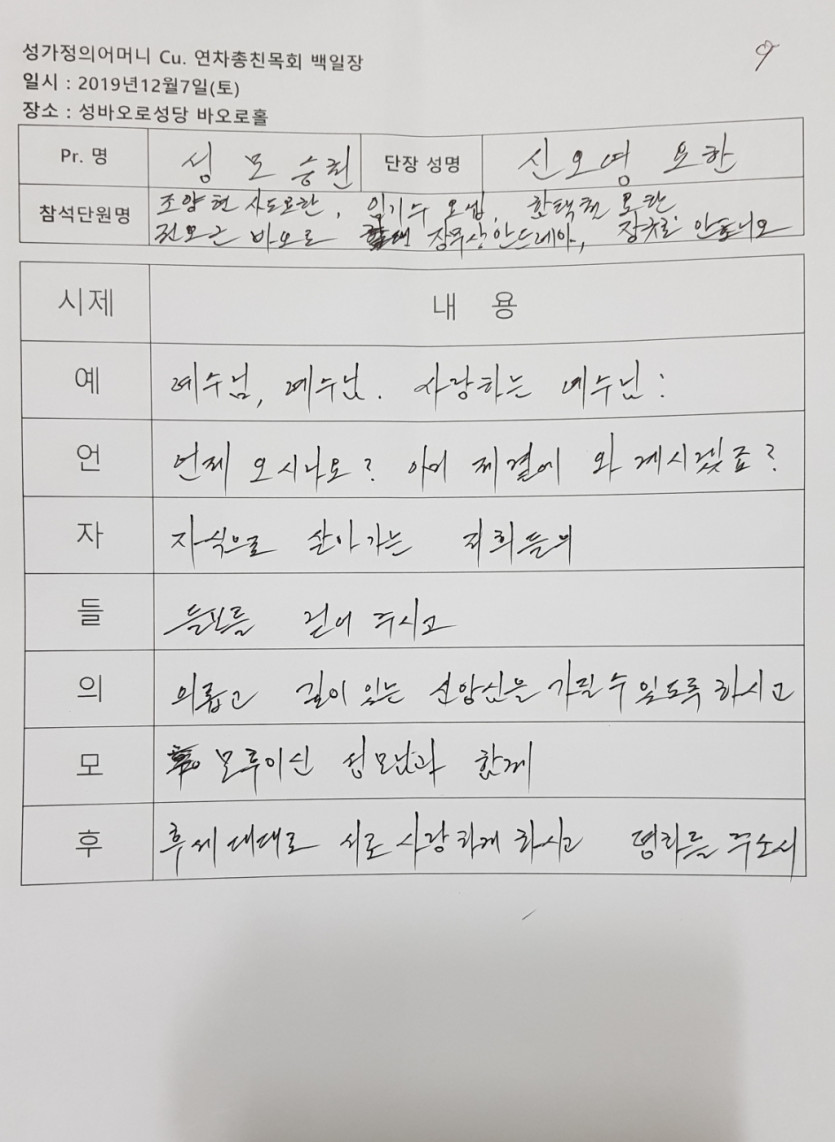 성가정의어머니 Cu. 연차총친목회 백일장
9
일시 : 2019년12월7일(토)
장소 : 성바오로성당 바오로홀
Pr. 명 성모승천 단장 성명 신오영 요한
참석단원명 조양현 사도요한, 임기수 요셉, 한택천 요한
전모근 바오로 장무상 안드레아, 안토니오
시제 내 용
예 예수님, 예수님. 사랑하는 예수님:
언 언제 오시나요? 아미 제곁에 와 계시겠죠?
자 자식으로 살아가는 저희들의
들 들보를 걷어 주시고
의 의롭고 깊이 있는 신앙심을 가질 수 있도록 하시고
모 모후이신 성모님과 함께
후 후세 대대로 서로 사랑하게 하시고 평화를 주소서